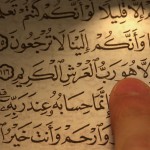 إِلَّا قَلِيلًا لَّوْ أَنَّكُمْ كُنتُمْ
وَأَنَّكُمْ إِلَيْنَا لَا تُرْجَعُونَ ١١٥
هُوَ رَبُّ الْعَرْشِ الْكَرِيمِ ١١٦
إِنَّمَا حِسَابُهُ عِندَ رَبِّهِ
وَارْحَمْ وَأَنتَ خَيْرُ